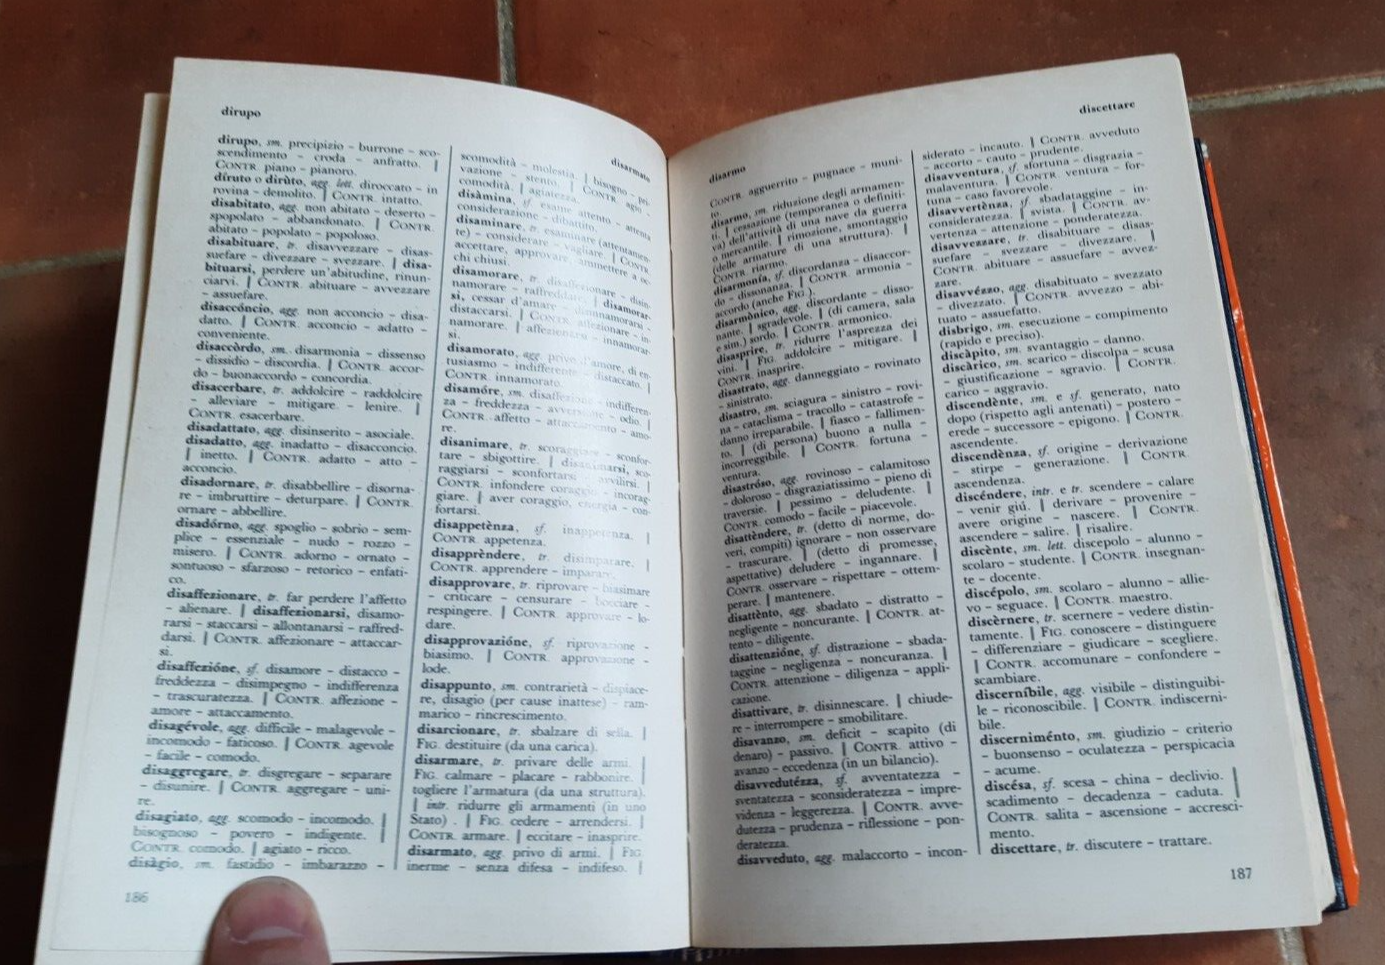 dirupo
disarmato
dirupo, sm. precipizio – burrone – sco-
scendimento – croda – anfratto. |
CONTR. piano – pianoro.
díruto o dirùto, agg. lett. diroccato – in
rovina – demolito. | CONTR. intatto.
disabitato, agg. non abitato – deserto –
spopolato – abbandonato. | CONTR.
abitato – popolato – popoloso.
disabituare, tr. disavvezzare – disas-
suefare – divezzare – svezzare. | disa-
bituarsi, perdere un'abitudine, rinun-
ciarvi. | CONTR. abituare – avvezzare
– assuefare.
disaccóncio, agg. non acconcio – disa-
datto. | CONTR. acconcio – adatto –
conveniente.
disaccòrdo, sm. disarmonia – dissenso
– dissidio – discordia. | CONTR. accor-
do – buonaccordo – concordia.
disacerbare, tr. addolcire – raddolcire
– alleviare – mitigare. – lenire. |
CONTR. esacerbare.
disadattato, agg. disinserito – asociale.
disadatto, agg. inadatto – disacconcio.
| inetto. | CONTR. adatto – atto –
acconcio.
disadornare, tr. disabbellire – disorna-
re – imbruttire – deturpare. | CONTR.
ornare – abbellire.
disadórno, agg. spoglio – sobrio – sem-
plice – essenziale – nudo – rozzo –
misero. | CONTR. adorno – ornato –
sontuoso – sfarzoso – retorico – enfati-
co.
disaffezionare, tr. far perdere l'affetto
– alienare. | disaffezionarsi, disamo-
rarsi – staccarsi – allontanarsi – raffred-
darsi. | CONTR. affezionare – attaccar-
si.
disaffezióne, sf. disamore – distacco –
freddezza – disimpegno – indifferenza
– trascuratezza. | CONTR. affezione –
amore – attaccamento.
disagévole, agg. difficile – malagevole –
incomodo – faticoso. | CONTR. agevole
– facile – comodo.
disaggregare, tr. disgregare – separare
– disunire. | CONTR. aggregare – uni-
re.
disagiato, agg. scomodo – incomodo. |
bisognoso – povero – indigente. |
CONTR. comodo. | agiato – ricco.
disàgio, sm. fastidio – imbarazzo –
186
scomodità – molestia. | bisogno – pri-
vazione – stento. | CONTR. agio –
comodità. | agiatezza.
disàmina, sf. esame attento – attenta
considerazione – dibattito.
disaminare, tr. esaminare (attentamen-
te) – considerare – vagliare. | CONTR.
accettare, approvare, ammettere a oc-
chi chiusi.
disamorare, tr. disaffezionare – disin-
namorare – raffreddare. | disamorar-
si, cessar d'amare – disinnamorarsi –
distaccarsi. | CONTR. affezionare – in-
namorare. | affezionarsi – innamorar-
si.
disamorato, agg. privo d'amore, di en-
tusiasmo – indifferente – distaccato. |
CONTR. innamorato.
disamóre, sm. disaffezione – indifferen-
za – freddezza – avversione – odio. |
CONTR. affetto – attaccamento – amo-
re.
disanimare, tr. scoraggiare – sconfor-
tare – sbigottire. | disanimarsi, sco-
raggiarsi – sconfortarsi – avvilirsi. |
CONTR. infondere coraggio – incorag-
giare. | aver coraggio, energia – con-
fortarsi.
disappetènza, sf. inappetenza. |
CONTR. appetenza.
disapprèndere, tr. disimparare. |
CONTR. apprendere – imparare.
disapprovare, tr. riprovare – biasimare
– criticare – censurare – bocciare –
respingere. | CONTR. approvare – lo-
dare.
disapprovazióne, sf. riprovazione –
biasimo. | CONTR. approvazione –
lode.
disappunto, sm. contrarietà – dispiace-
re, disagio (per cause inattese) – ram-
marico – rincrescimento.
disarcionare, tr. sbalzare di sella. |
FIG. destituire (da una carica).
disarmare, tr. privare delle armi. |
FIG. calmare – placare – rabbonire. |
togliere l'armatura (da una struttura).
| intr. ridurre gli armamenti (in uno
Stato) . | FIG. cedere – arrendersi. |
CONTR. armare. | eccitare – inasprire.
disarmato, agg. privo di armi. | FIG.
inerme – senza difesa – indifeso. |
disarmo
discettare
CONTR. agguerrito – pugnace – muni-
to.
disarmo, sm. riduzione degli armamen-
ti. | cessazione (temporanea o definiti-
va) dell'attività di una nave da guerra
o mercantile. | rimozione, smontaggio
(delle armature di una struttura). |
CONTR. riarmo.
disarmonía, sf. discordanza – disaccor-
do – dissonanza. | CONTR. armonia –
accordo (anche FIG.).
disarmònico, agg. discordante – disso-
nante. | sgradevole. | (di camera, sala
e sim.) sordo. | CONTR. armonico.
disasprire, tr. ridurre l'asprezza dei
vini. | FIG. addolcire – mitigare. |
CONTR. inasprire.
disastrato, agg. danneggiato – rovinato
– sinistrato.
disastro, sm. sciagura – sinistro – rovi-
na – cataclisma – tracollo – catastrofe –
danno irreparabile. | fiasco – fallimen-
to. | (di persona) buono a nulla –
incorreggibile. | CONTR. fortuna –
ventura.
disastróso, agg. rovinoso – calamitoso
– doloroso – disgraziatissimo – pieno di
traversie. | pessimo – deludente. |
CONTR. comodo – facile – piacevole.
disattèndere, tr. (detto di norme, do-
veri, compiti) ignorare – non osservare
– trascurare. | (detto di promesse,
aspettative) deludere – ingannare. |
CONTR. osservare – rispettare – ottem-
perare. | mantenere.
disattènto, agg. sbadato – distratto –
negligente – noncurante. | CONTR. at-
tento – diligente.
disattenzióne, sf. distrazione – sbada-
taggine – negligenza – noncuranza. |
CONTR. attenzione – diligenza – appli-
cazione.
disattivare, tr. disinnescare. | chiude-
re – interrompere – smobilitare.
disavanzo, sm. deficit – scapito (di
denaro) – passivo. | CONTR. attivo –
avanzo – eccedenza (in un bilancio).
disavvedutézza, sf. avventatezza –
sventatezza – sconsideratezza – impre-
videnza – leggerezza. | CONTR. avve-
dutezza – prudenza – riflessione – pon-
deratezza.
disavveduto, agg. malaccorto – incon-
siderato – incauto. | CONTR. avveduto
– accorto – cauto – prudente.
disavventura, sf. sfortuna – disgrazia –
malaventura. | CONTR. ventura – for-
tuna – caso favorevole.
disavvertènza, sf. sbadataggine – in-
consideratezza. | svista. | CONTR. av-
vertenza – attenzione – ponderatezza.
disavvezzare, tr. disabituare – disas-
suefare – svezzare – divezzare. |
CONTR. abituare – assuefare – avvez-
zare.
disavvézzo, agg. disabituato – svezzato
– divezzato. | CONTR. avvezzo – abi-
tuato – assuefatto.
disbrigo, sm. esecuzione – compimento
(rapido e preciso).
discàpito, sm. svantaggio – danno.
discàrico, sm. scarico – discolpa – scusa
– giustificazione – sgravio. | CONTR.
carico – aggravio.
discendènte, sm. e sf. generato, nato
dopo (rispetto agli antenati) – postero –
erede – successore – epigono. | CONTR.
ascendente.
discendènza, sf. origine – derivazione
– stirpe – generazione. | CONTR.
ascendenza.
discéndere, intr. e tr. scendere – calare
– venir giú. | derivare – provenire –
avere origine – nascere. | CONTR.
ascendere – salire. | risalire.
discènte, sm. lett. discepolo – alunno –
scolaro – studente. | CONTR. insegnan-
te – docente.
discépolo, sm. scolaro – alunno – allie-
vo – seguace. | CONTR. maestro.
discèrnere, tr. scernere – vedere distin-
tamente. | FIG. conoscere – distinguere
– differenziare – giudicare – scegliere.
| CONTR. accomunare – confondere –
scambiare.
discerníbile, agg. visibile – distinguibi-
le – riconoscibile. | CONTR. indiscerni-
bile.
discerniménto, sm. giudizio – criterio
– buonsenso – oculatezza – perspicacia
– acume.
discésa, sf. scesa – china – declivio. |
scadimento – decadenza – caduta. |
CONTR. salita – ascensione – accresci-
mento.
discettare, tr. discutere – trattare.
187